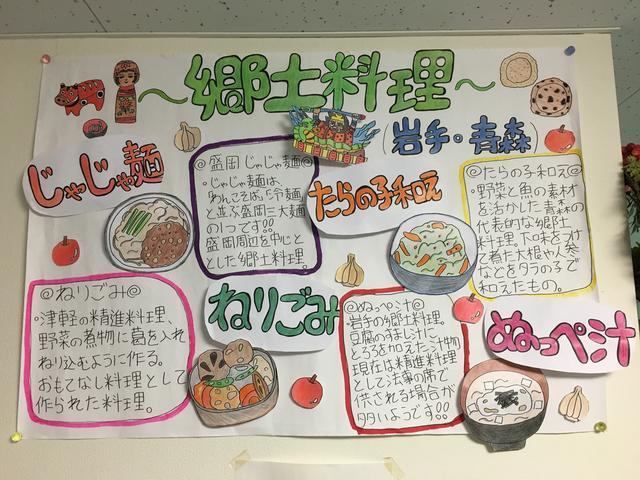 〜郷土料理〜
(岩手・青森)
じゃじゃ麺
◎盛岡じゃじゃ麺◎
・じゃじゃ麺は、
わんこそば、「冷麺
と並ぶ盛岡三大麺
の1つです!!
盛岡周辺を中心と
とした郷土料理。
たらの子和え
◎たらの子和え◎
・野菜と魚の素材
を活かした青森の
代表的な郷土
料理。下味をつけ
て着た大根や人参
などをタラの子で
和えたもの。
ねりごみ
◎ねりごみ◎
・津軽の精進料理、
野菜の煮物に葛を入れ
ねり込むように作る。
おもてなし料理として
作られた料理。
ぬっぺ汁
◎ぬっぺ汁◎
・岩手の郷土料理。
豆腐のすまし汁に
とろろを加えた汁物
現在は精進料理
として法事の席で
供される場合が
多いようです!!